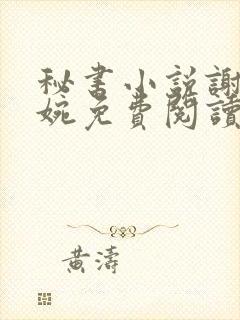 秘書小説謝
婉免費閱讀
黃濤